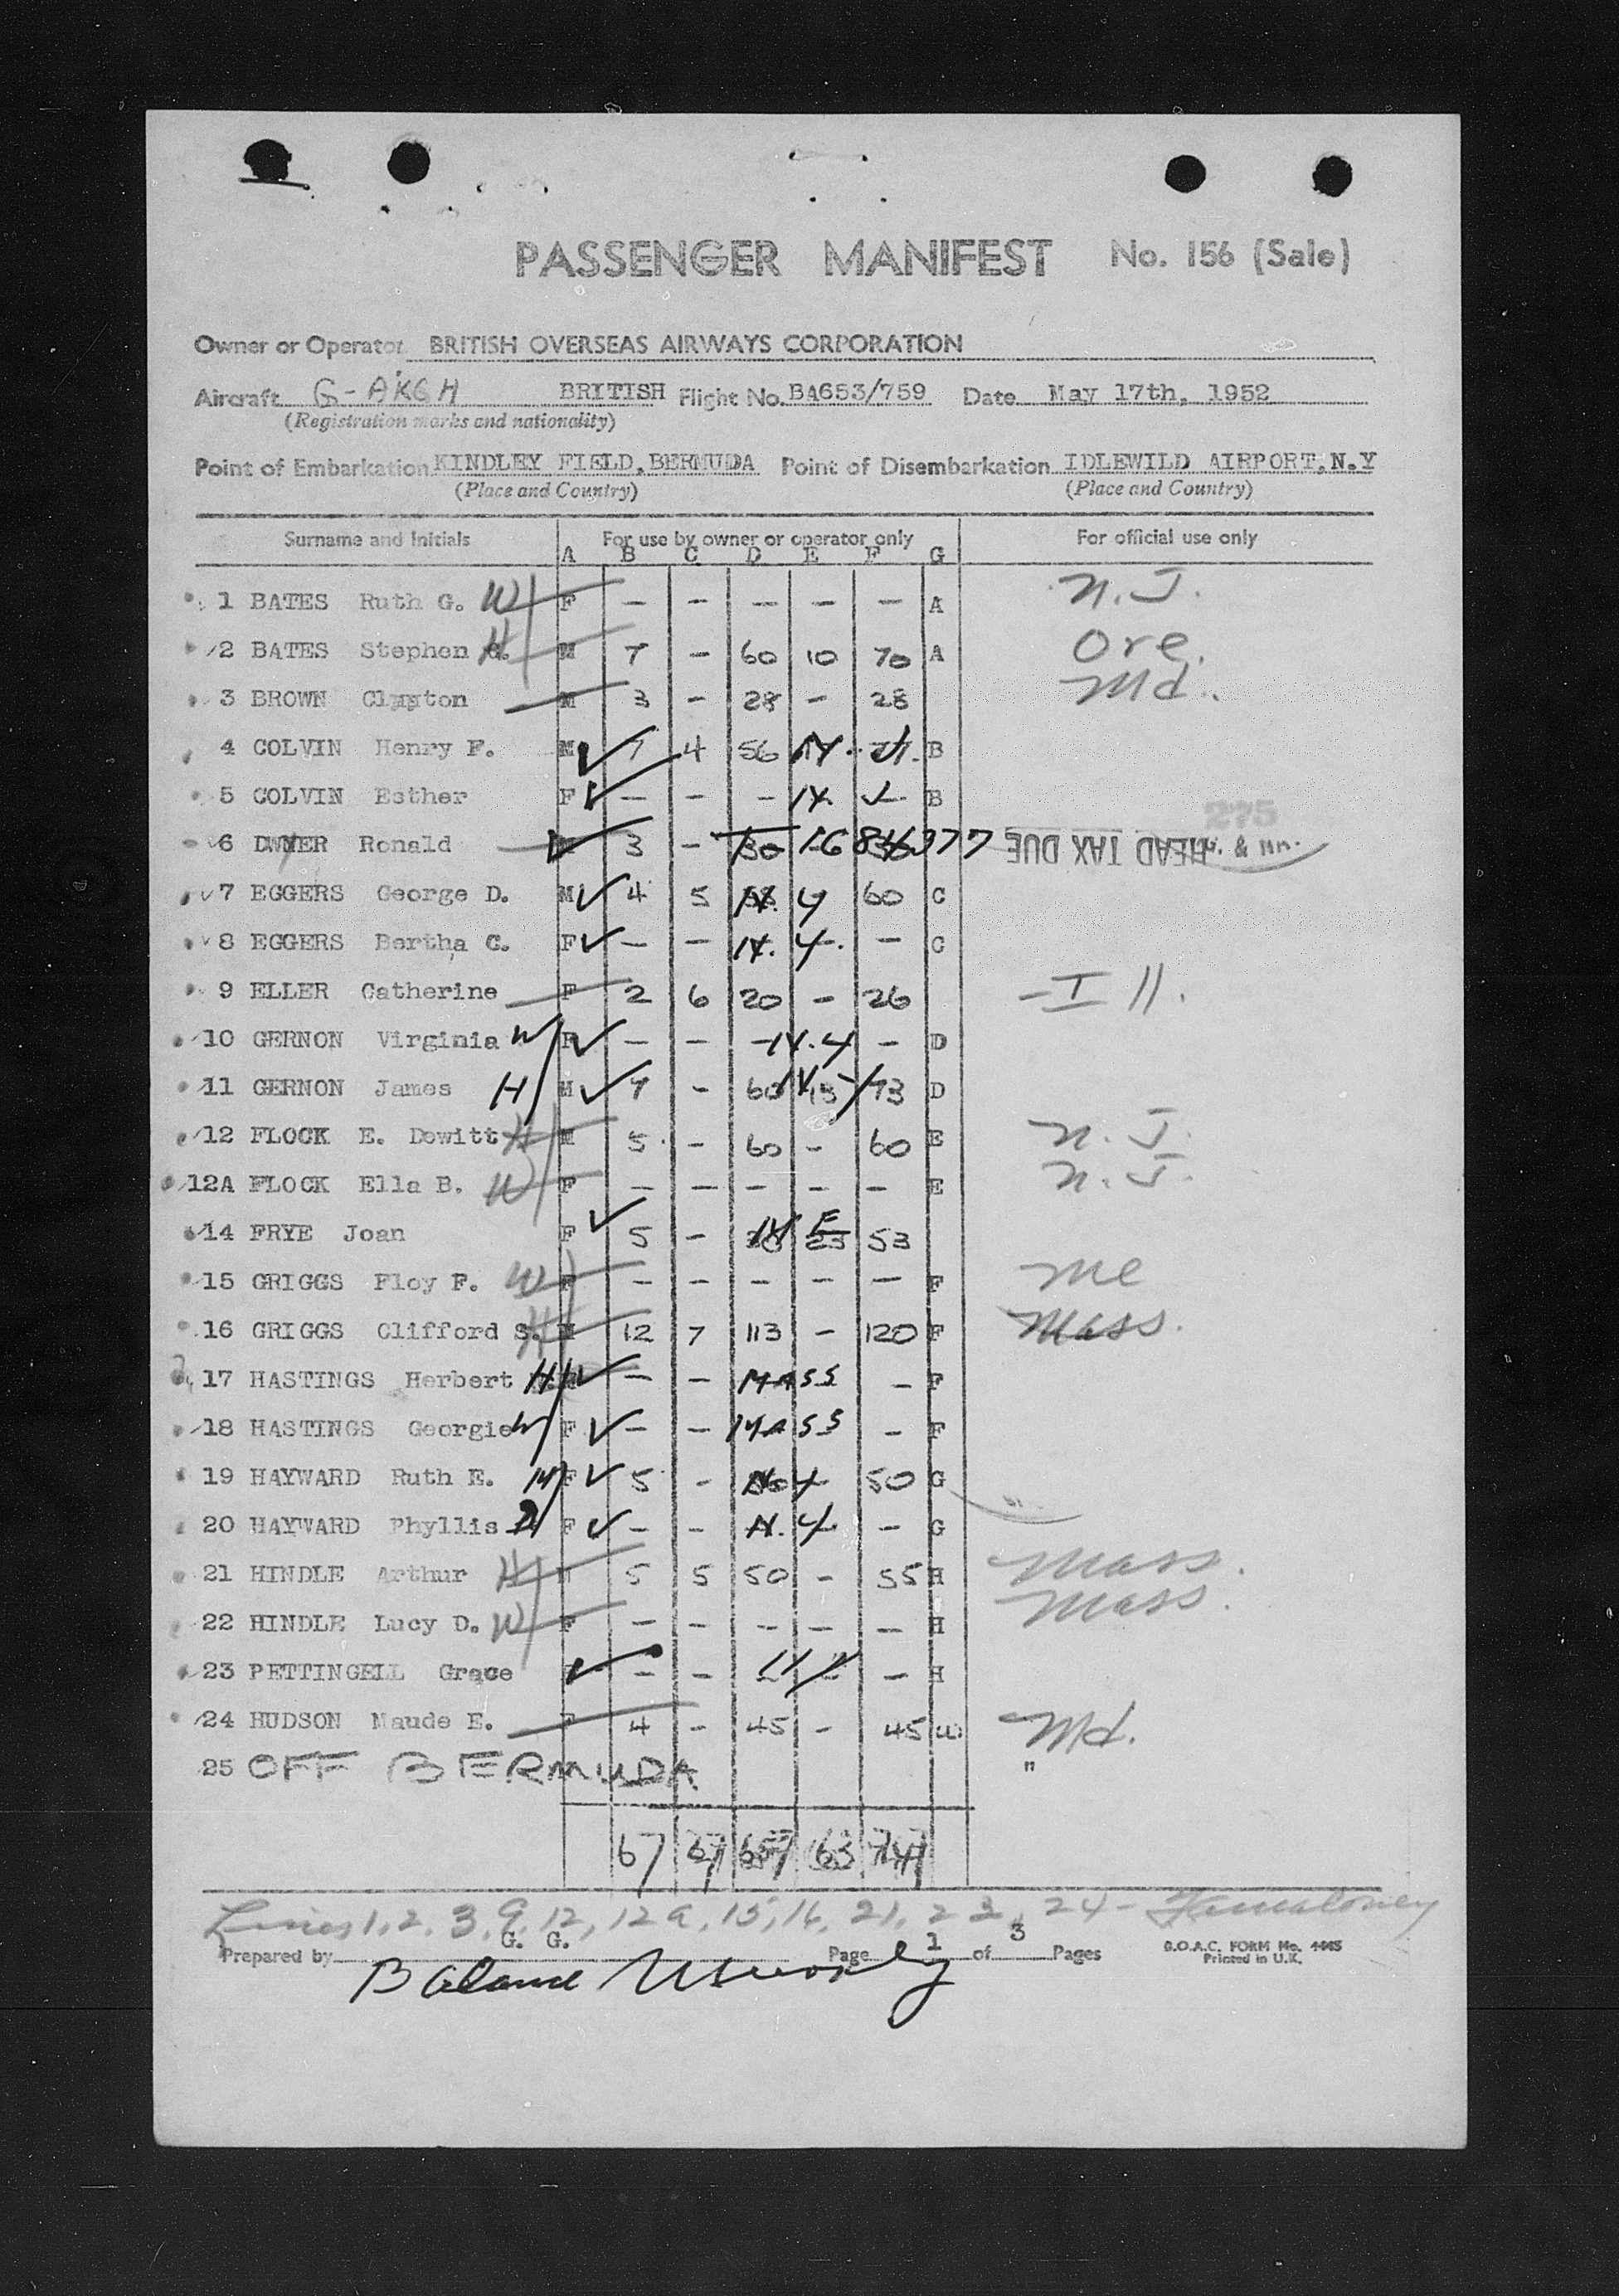 PASSENGER MANIFEST No. 156 (Sale)
Owner or Operator BRITISH OVERSEAS AIRWAYS CORPORATION
Aircraft G-AKGH BRITISH Flight No. BA653/759 Date May 17th, 1952
(Registration marks and nationality)
Point of Embarkation KINDLEY FIELD, BERMUDA Point of Disembarkation IDLEWILD AIRPORT, N.Y
(Place and Country) (Place and Country)
Surname and Initials For use by owner or operator only For official use only
A B C D E F G
1 BATES Ruth G. W F — — — — — A N.J.
2 BATES Stephen H M 7 — 60 10 70 A Ore.
3 BROWN Clayton M 3 — 28 — 28 Md.
4 COLVIN Henry F. M 7 4 56 N.Y. B
5 COLVIN Esther F — — — N.Y. B
6 DWYER Ronald 3 — 30 HEAD TAX DUE 275
7 EGGERS George D. M 4 5 N.Y 60 C
8 EGGERS Bertha C. F — — N.Y. — C
9 ELLER Catherine F 2 6 20 — 26 Ill.
10 GERNON Virginia W F — — — N.Y — D
11 GERNON James H M 7 — 60 13 73 D
12 FLOCK E. Dewitt H M 5 — 60 — 60 E N.J.
12A FLOCK Ella B. W F — — — — — E N.J.
14 FRYE Joan F 5 — 53
15 GRIGGS Floy F. W F — — — — — F Me
16 GRIGGS Clifford S. H M 12 7 113 — 120 F Mass.
17 HASTINGS Herbert H — — MASS — F
18 HASTINGS Georgie W F — — MASS — F
19 HAYWARD Ruth E. M F 5 — N.Y 50 G
20 HAYWARD Phyllis D F — — N.Y. — G
21 HINDLE Arthur H M 5 5 50 — 55 H Mass.
22 HINDLE Lucy D. W F — — — — — H Mass.
23 PETTINGELL Grace F — — — H
24 HUDSON Maude E. F 4 — 45 — 45 Md.
25 OFF BERMUDA "
67 63
Lines 1, 2, 3, 9, 12, 12a, 15, 16, 21, 22, 24 -
Prepared by G. G. Page 1 of 3 Pages B.O.A.C. FORM No. 1445
Printed in U.K.
Balance